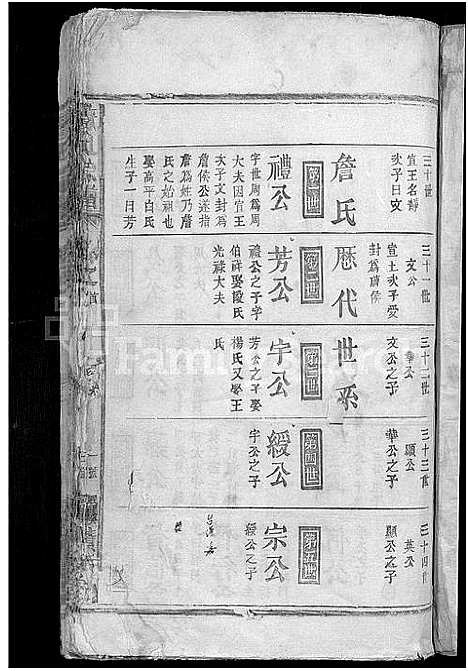 三十世
宣王名靜
次子曰文
三十一世
文公
宣王次子爱
封為詹侯
三十二世
華公
文公之子
三十三世
顯公
華公之子
三十四世
英公
顯公之子
詹氏歷代世系
第一世
禮公
字世周為周
大夫因宣王
次子文封為
詹侯公遂指
詹為姓乃詹
氏之始祖也
娶高平白氏
生子一曰芳
第二世
芳公
禮公之子字
伯祥娶陵氏
光祿大夫
第三世
宇公
芳公之子娶
楊氏又娶王
氏
第四世
綬公
宇公之子
第五世
宗公
綬公之子